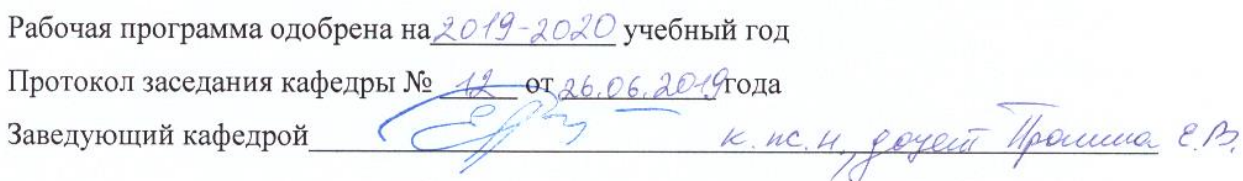 Рабочая программа одобрена на 2019-2020 учебный год
Протокол заседания кафедры № 12 от 26.06.2019 года
Заведующий кафедрой к. пс. н., доцент Е.В.